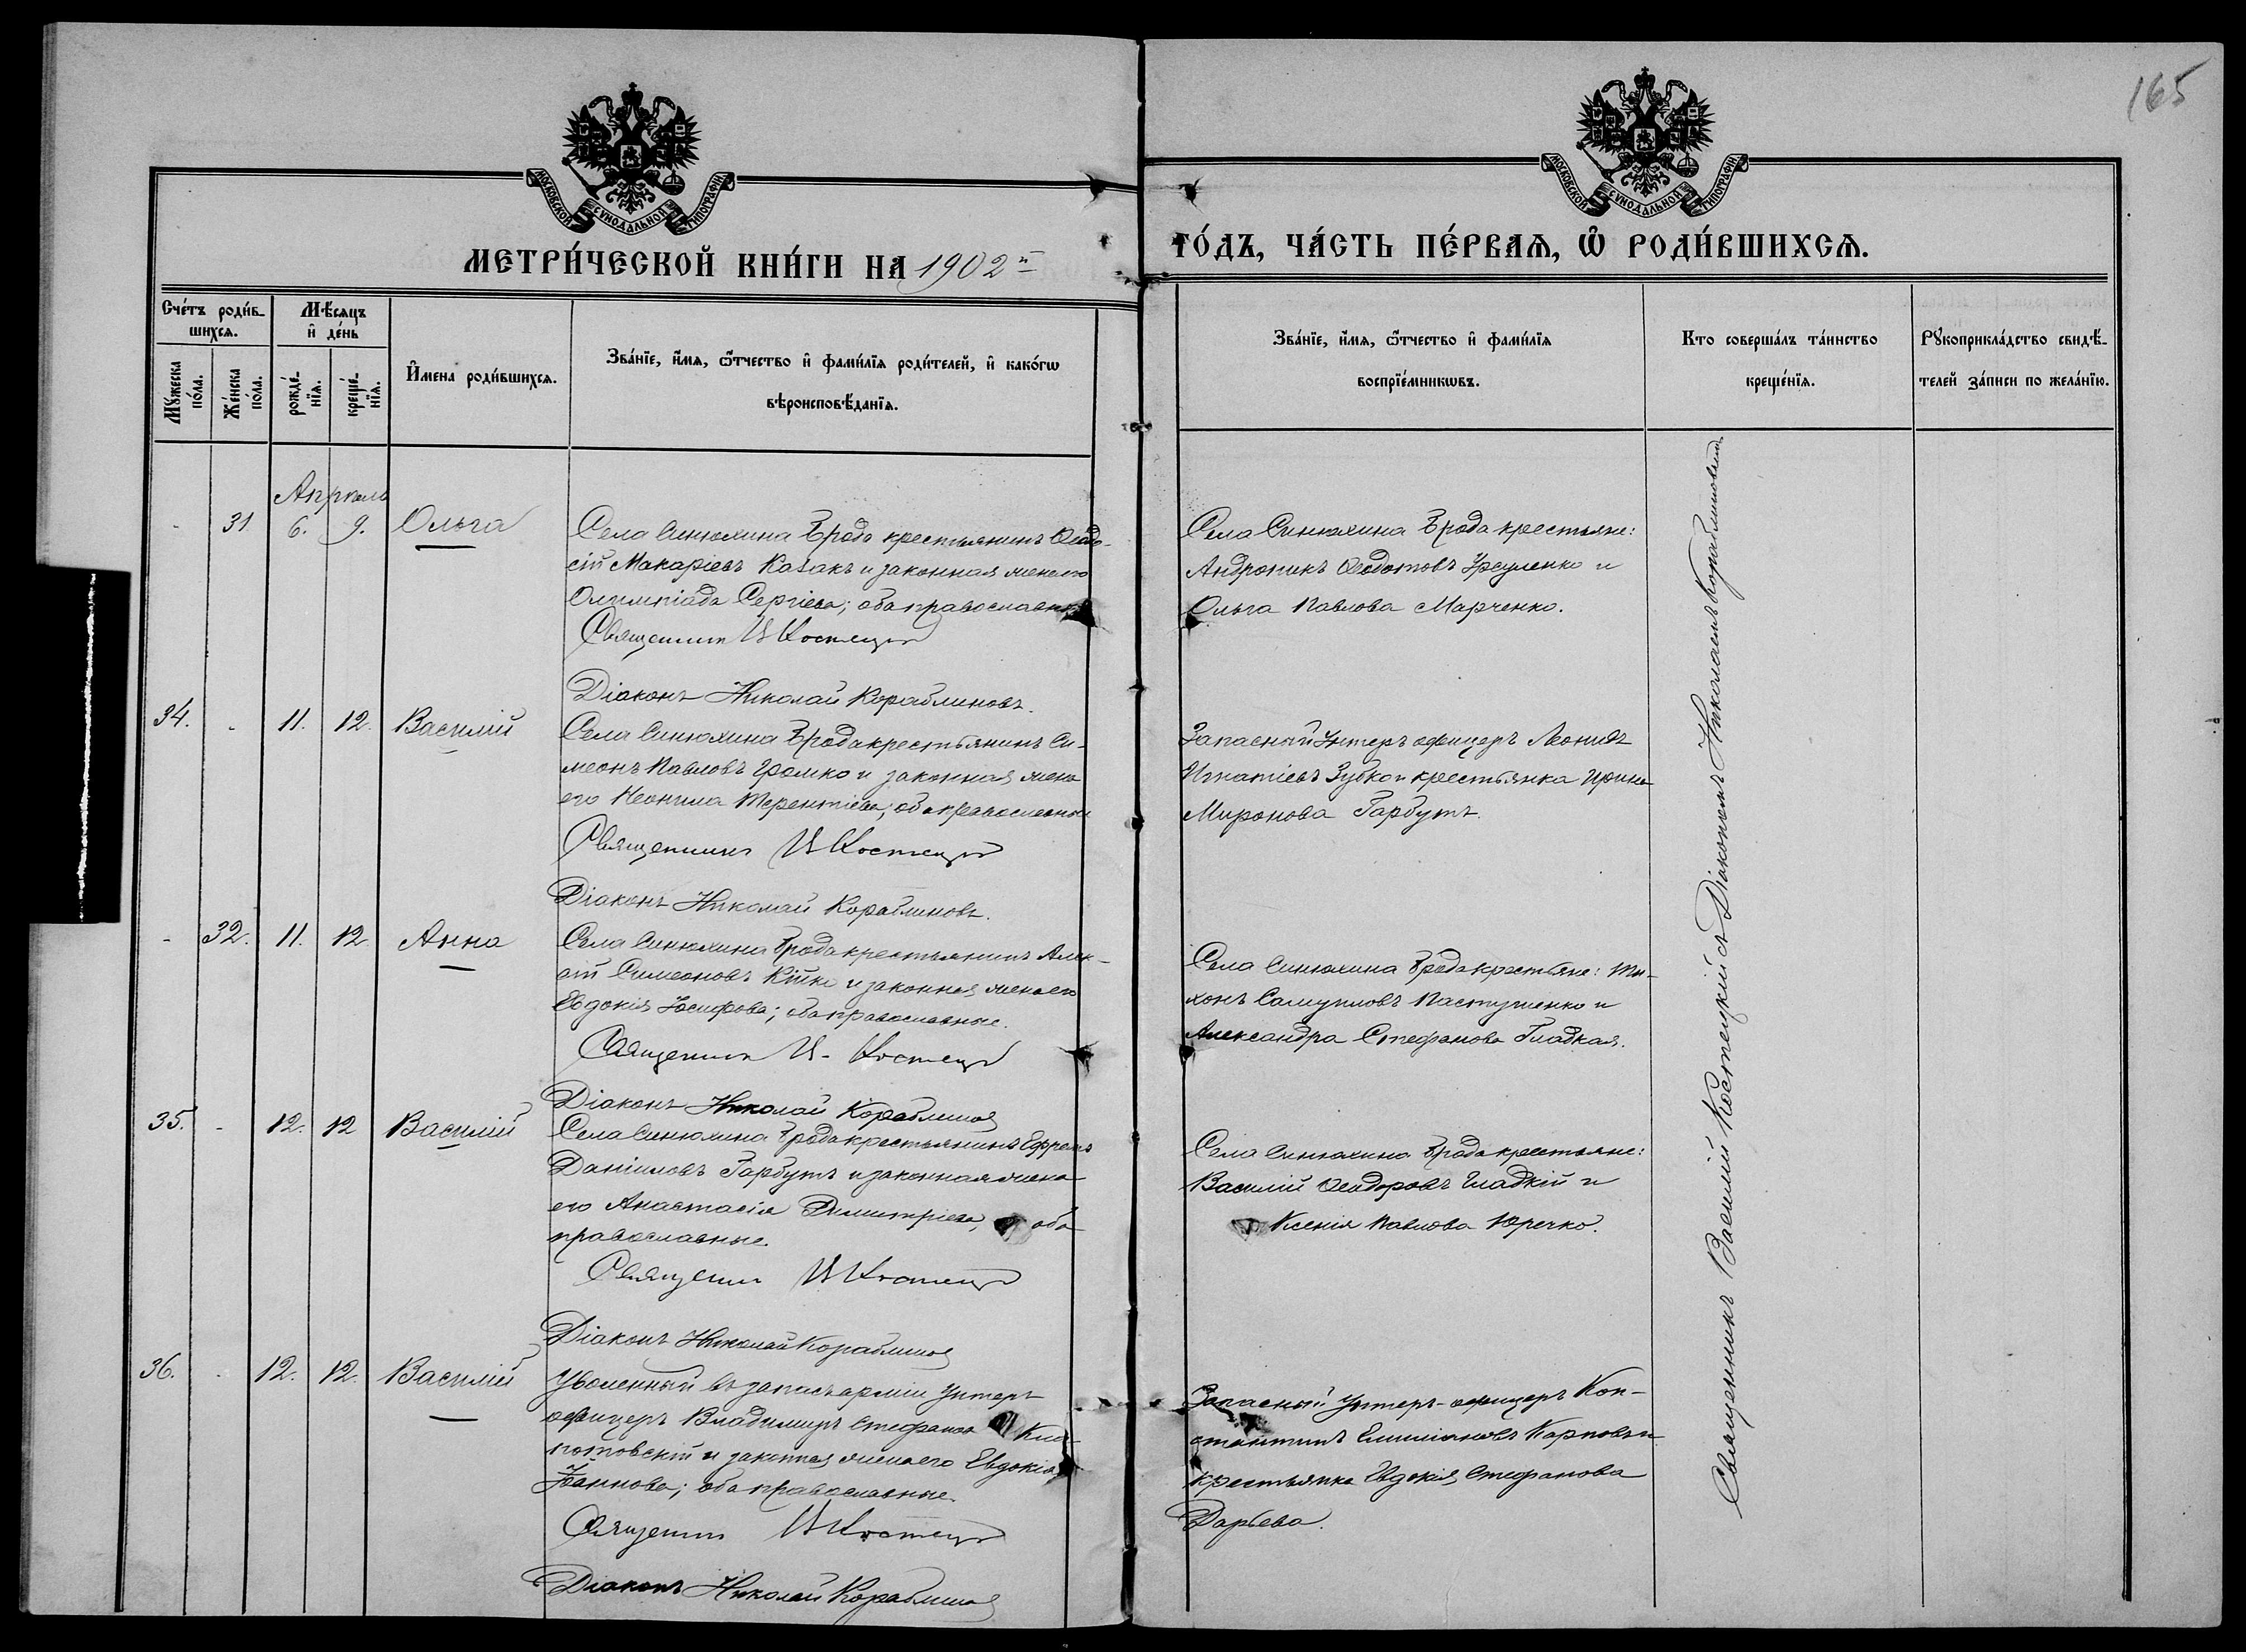 165
МОСКОВСКОЙ СѴНОДАЛЬНОЙ ТИПОГРАФІИ
МОСКОВСКОЙ СѴНОДАЛЬНОЙ ТИПОГРАФІИ
МЕТРИ́ЧЕСКОЙ КНИ́ГИ НА 1902й
ГО́ДЪ, ЧА́СТЬ ПЕ́РВАѦ, Ѡ҆ РОДИ́ВШИХСѦ.
Сче́тъ роди́в-
шихсѧ.
Мꙋ́жеска по́ла.
Же́нска по́ла.
Мѣ́сѧцъ
и҆ де́нь
рожде́-
нїѧ.
креще́-
нїѧ.
И҆мена роди́вшихсѧ.
Зва́нїе, и҆́мѧ, ѻ҆́тчество и҆ фами́лїѧ роди́телей, и҆ како́гѡ
вѣроисповѣ́данїѧ.
Зва́нїе, и҆́мѧ, ѻ҆́тчество и҆ фами́лїѧ
воспрїе́мникѡвъ.
Кто соверша́лъ та́инство
креще́нїѧ.
Рꙋкоприкла́дство свидѣ́-
телей за́писи по жела́нїю.
Апрѣль
- 31 6. 9. Ольга
Села Синюхина Брода крестьянинъ Ѳеодо-
сій Макаріевъ Казакъ и законная жена его
Олимпіада Сергіева; оба православные
Священник В Костецкій
Діаконъ Николай Кораблиновъ.
Села Синюхина Брода крестьяне:
Андроникъ Ѳеодотовъ и
Ольга Павлова Марченко.
34. - 11. 12. Василій
Села Синюхина Брода крестьянинъ Си-
меонъ Павловъ Громко и законная жена
его Неонила Терентіева; оба православные
Священникъ В Костецкій
Діаконъ Николай Кораблиновъ.
Запасный Унтеръ офицеръ Леонидъ
Игнатіевъ Зубко и крестьянка Ирина
Миронова Гарбутъ.
- 32. 11. 12. Анна
Села Синюхина Брода крестьянинъ Алек-
сій Симеоновъ и законная жена его
Евдокія Іосифова; оба православные.
Священник В. Костецкій
Діаконъ Николай Кораблинов
Села Синюхина Брода крестьяне: Ти-
хонъ Самуиловъ Пастушенко и
Александра Стефанова Гладкая.
35. - 12. 12 Василій
Села Синюхина Брода крестьянинъ Ефремъ
Даніиловъ Гарбутъ и законная жена
его Анастасія Димитріева, оба
православные.
Священник В Костецкій
Діаконъ Николай Кораблинов
Села Синюхина Брода крестьяне:
Василій Ѳеодоровъ Гладкій и
Ксенія Павлова Юречко.
36. - 12. 12. Василій
Уволенный въ запасъ арміи Унтеръ
офицеръ Владимиръ Стефанов Кло-
потовскій и законная жена его Евдокія
Іоаннова; оба православные.
Священник В Костецкій
Діаконъ Николай Кораблинов
Запасный Унтеръ-офицеръ Кон-
стантинъ Емиліановъ Карповъ и
крестьянка Евдокія Стефанова
Дарьева.
Священникъ Василій Костецкій съ Діакономъ Николаемъ Кораблиновымъ